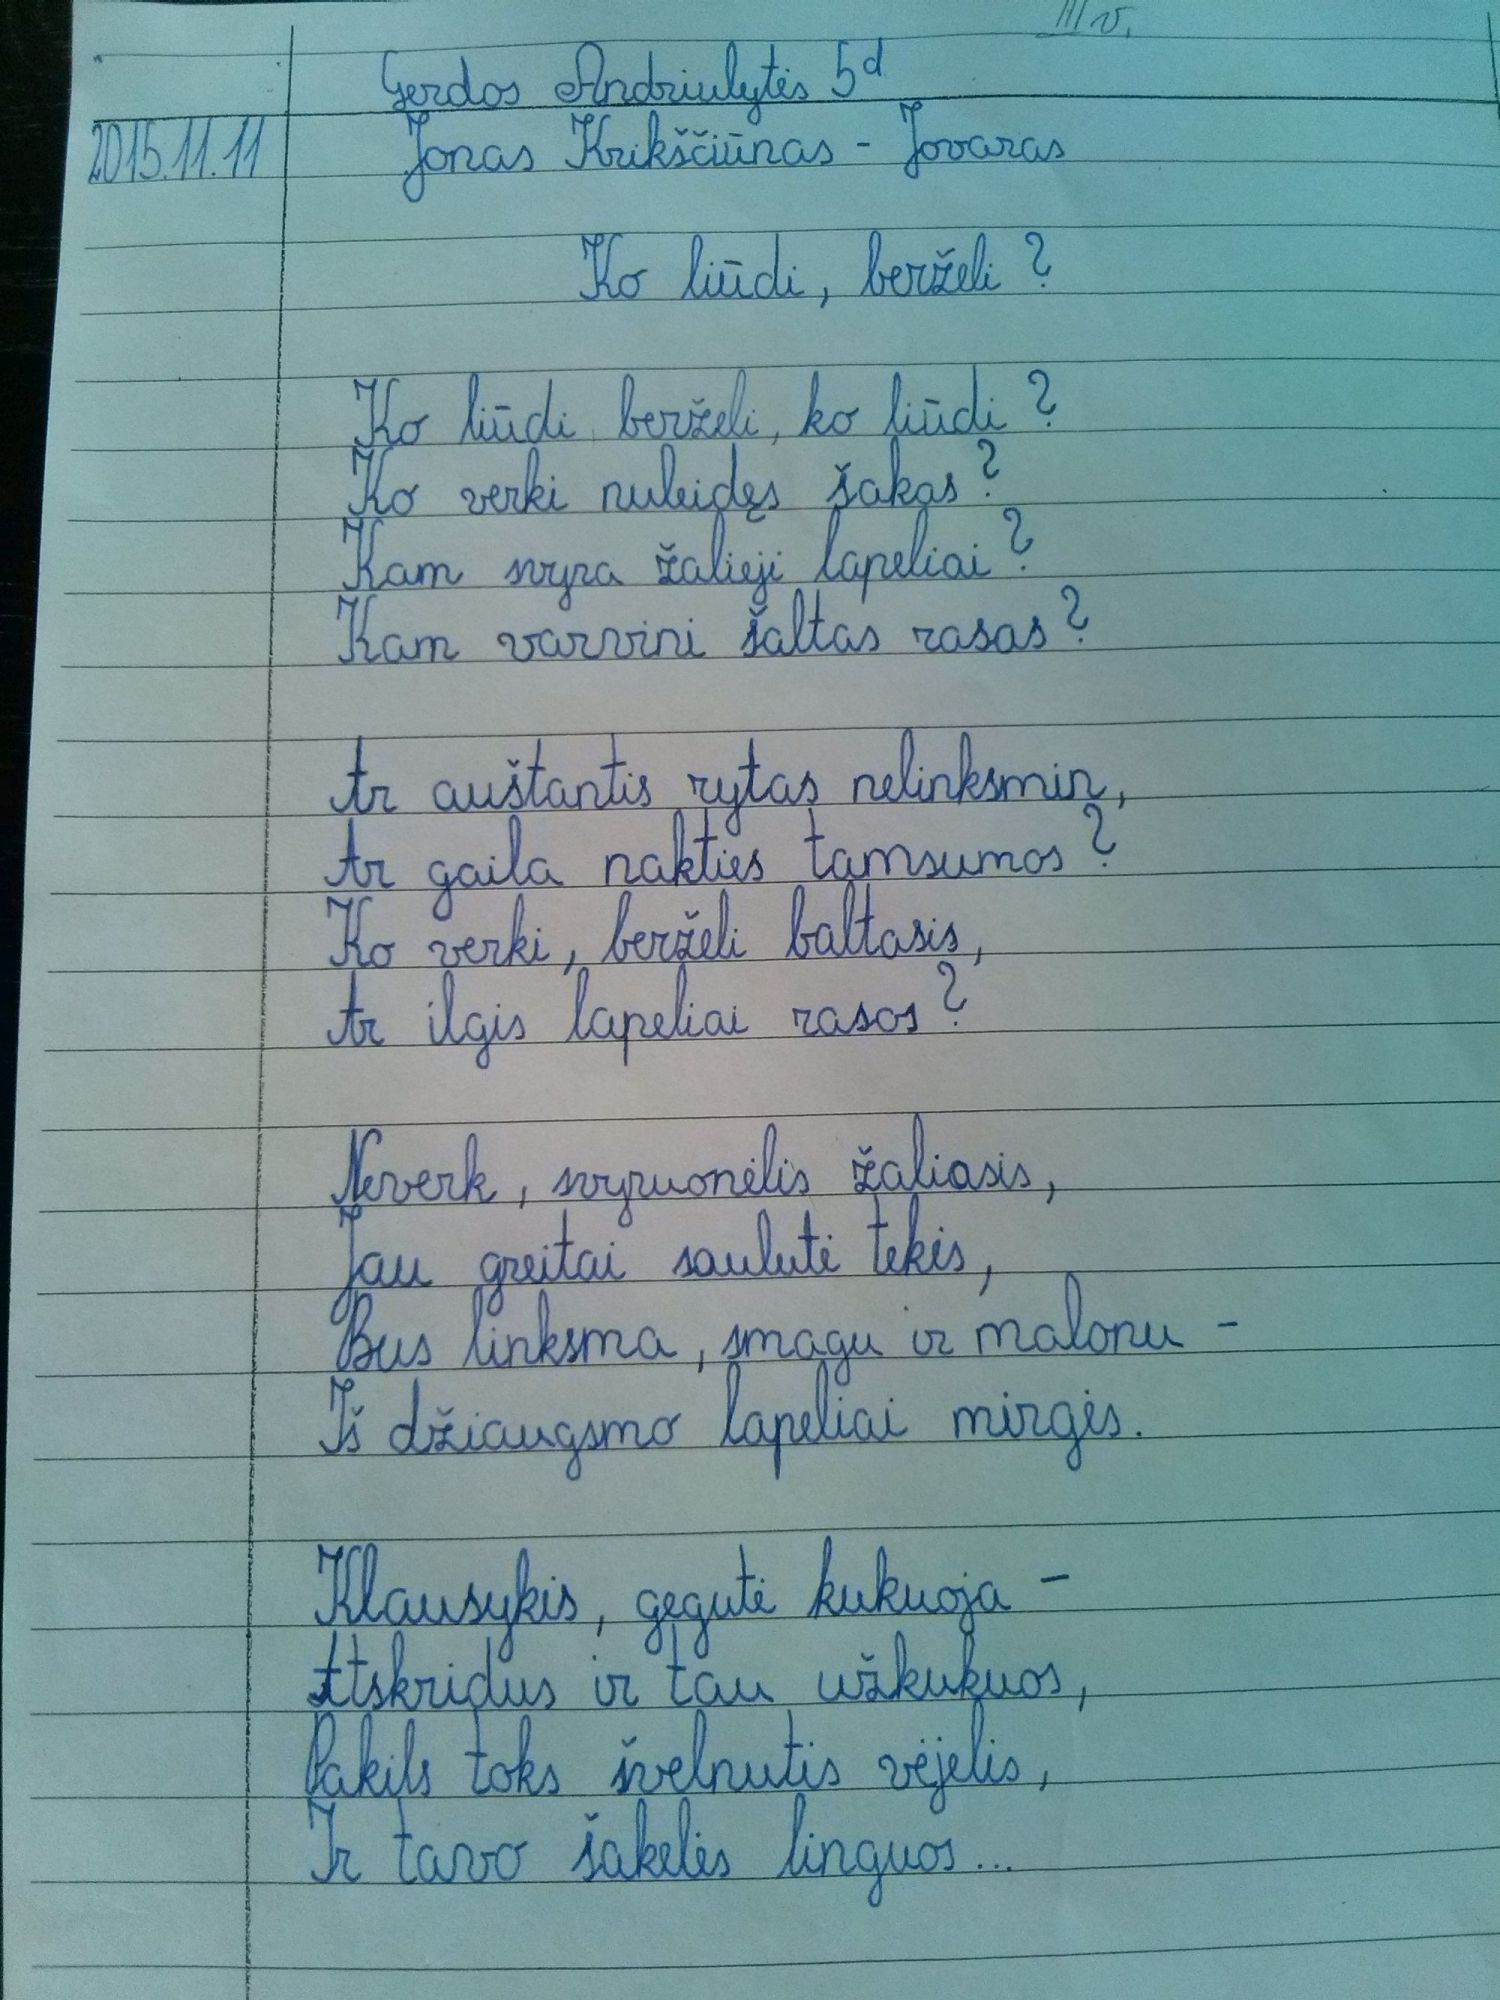 III v.
Gerdos Andriulytės 5d
2015.11.11 Jonas Krikščiūnas - Jovaras
Ko liūdi, berželi?
Ko liūdi berželi, ko liūdi?
Ko verki nuleidęs šakas?
Kam svyra žalieji lapeliai?
Kam varvini šaltas rasas?
Ar auštantis rytas nelinksmin,
Ar gaila nakties tamsumos?
Ko verki, berželi baltasis,
Ar ilgis lapeliai rasos?
Neverk, svyruonėlis žaliasis,
Jau greitai saulutė tekės,
Bus linksma, smagu ir malonu -
Iš džiaugsmo lapeliai mirgės.
Klausykis, gegutė kukuoja -
Atskridus ir tau užkukuos,
Pakils toks švelnutis vėjelis,
Ir tavo šakelės linguos...